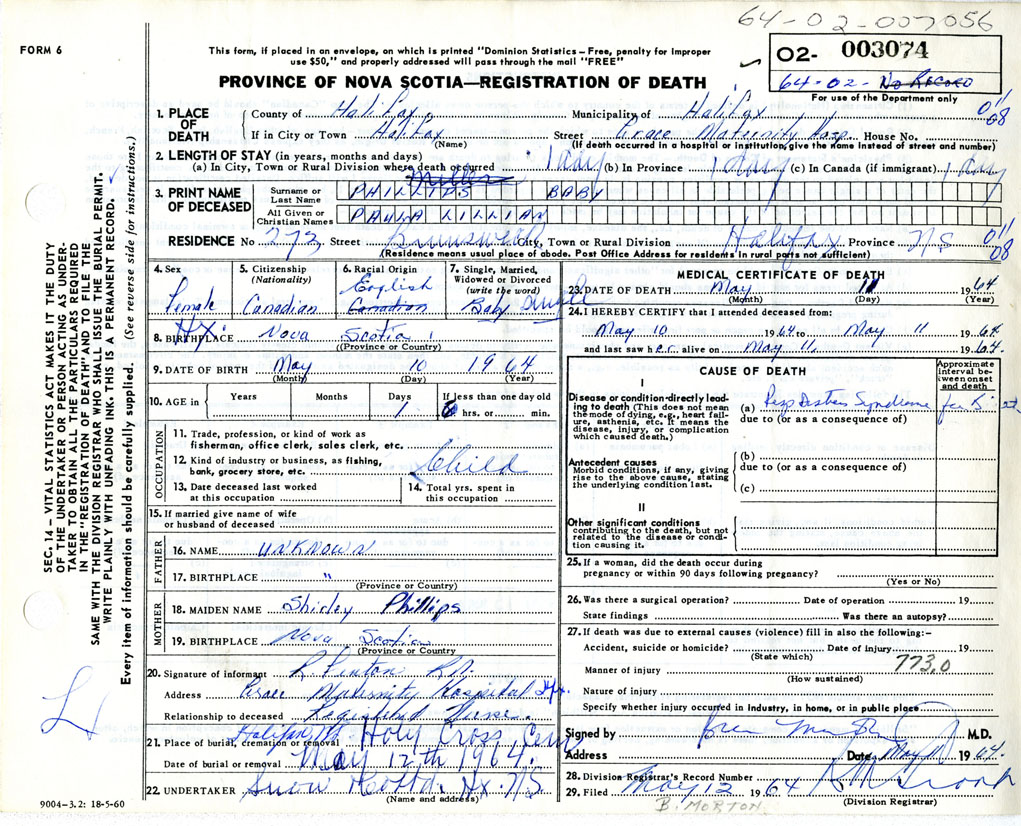 64-02-007056
FORM 6
This form, if placed in an envelope, on which is printed "Dominion Statistics – Free, penalty for improper
use $50," and properly addressed will pass through the mail "FREE"
02- 003074
64-02- No Record
For use of the Department only
PROVINCE OF NOVA SCOTIA—REGISTRATION OF DEATH
1. PLACE OF DEATH
County of Halifax Municipality of Halifax
If in City or Town Halifax Street Grace Maternity Hosp. House No.
(Name) (If death occurred in a hospital or institution, give the name instead of street and number)
2. LENGTH OF STAY (in years, months and days)
(a) In City, Town or Rural Division where death occurred 1 day (b) In Province 1 day (c) In Canada (if immigrant) 1 day
3. PRINT NAME OF DECEASED
Surname or Last Name PHILLIPS BABY
All Given or Christian Names PAULA LILLIAN
RESIDENCE No 273 Street Brunswick City, Town or Rural Division Halifax Province NS
(Residence means usual place of abode. Post Office Address for residents in rural parts not sufficient)
4. Sex Female
5. Citizenship (Nationality) Canadian
6. Racial Origin English Canadian
7. Single, Married, Widowed or Divorced (write the word) Baby Single
8. BIRTHPLACE Hx. Nova Scotia
(Province or Country)
9. DATE OF BIRTH May 10 1964
(Month) (Day) (Year)
10. AGE in Years Months Days 1 If less than one day old hrs. or min.
OCCUPATION
11. Trade, profession, or kind of work as fisherman, office clerk, sales clerk, etc.
12. Kind of industry or business, as fishing, bank, grocery store, etc. Child
13. Date deceased last worked at this occupation
14. Total yrs. spent in this occupation
15. If married give name of wife or husband of deceased
FATHER
16. NAME UNKNOWN
17. BIRTHPLACE "
(Province or Country)
MOTHER
18. MAIDEN NAME Shirley Phillips
19. BIRTHPLACE Nova Scotia
(Province or Country)
20. Signature of informant
Address Grace Maternity Hospital Hfx.
Relationship to deceased Registered Nurse.
21. Place of burial, cremation or removal Halifax Holy Cross Cem
Date of burial or removal May 12th 1964.
22. UNDERTAKER Snow Hx. NS
(Name and address)
9004-3.2: 18-5-60
MEDICAL CERTIFICATE OF DEATH
23. DATE OF DEATH May 11 1964
(Month) (Day) (Year)
24. I HEREBY CERTIFY that I attended deceased from:
May 10 1964 to May 11 1964
and last saw her alive on May 11, 1964.
CAUSE OF DEATH
Approximate interval between onset and death
I
Disease or condition directly leading to death (This does not mean the mode of dying, e.g., heart failure, asthenia, etc. It means the disease, injury, or complication which caused death.)
(a) Resp Distress Syndrome
due to (or as a consequence of)
Antecedent causes
Morbid conditions, if any, giving rise to the above cause, stating the underlying condition last.
(b)
due to (or as a consequence of)
(c)
II
Other significant conditions contributing to the death, but not related to the disease or condition causing it.
25. If a woman, did the death occur during pregnancy or within 90 days following pregnancy?
(Yes or No)
26. Was there a surgical operation? Date of operation 19
State findings Was there an autopsy?
27. If death was due to external causes (violence) fill in also the following:-
Accident, suicide or homicide? Date of injury 19
(State which) 773.0
Manner of injury
(How sustained)
Nature of injury
Specify whether injury occurred in industry, in home, or in public place
Signed by M.D.
Address Date May 11 1964.
28. Division Registrar's Record Number
29. Filed May 12 1964
B. MORTON (Division Registrar)
SEC. 14 – VITAL STATISTICS ACT MAKES IT THE DUTY
OF THE UNDERTAKER OR PERSON ACTING AS UNDER-
TAKER TO OBTAIN ALL THE PARTICULARS REQUIRED
IN THE "REGISTRATION OF DEATH" AND TO FILE THE
SAME WITH THE DIVISION REGISTRAR WHO SHALL ISSUE THE BURIAL PERMIT.
WRITE PLAINLY WITH UNFADING INK. THIS IS A PERMANENT RECORD.
Every item of information should be carefully supplied. (See reverse side for instructions.)